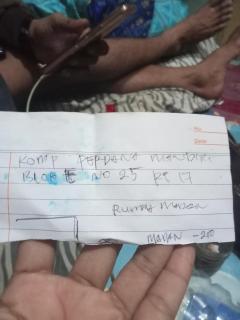 No:
Date:
KOMP PERDANA MANDIRI
BLOK E NO 25 Rt 17
RUMAH MAKAN
MAKAN -200